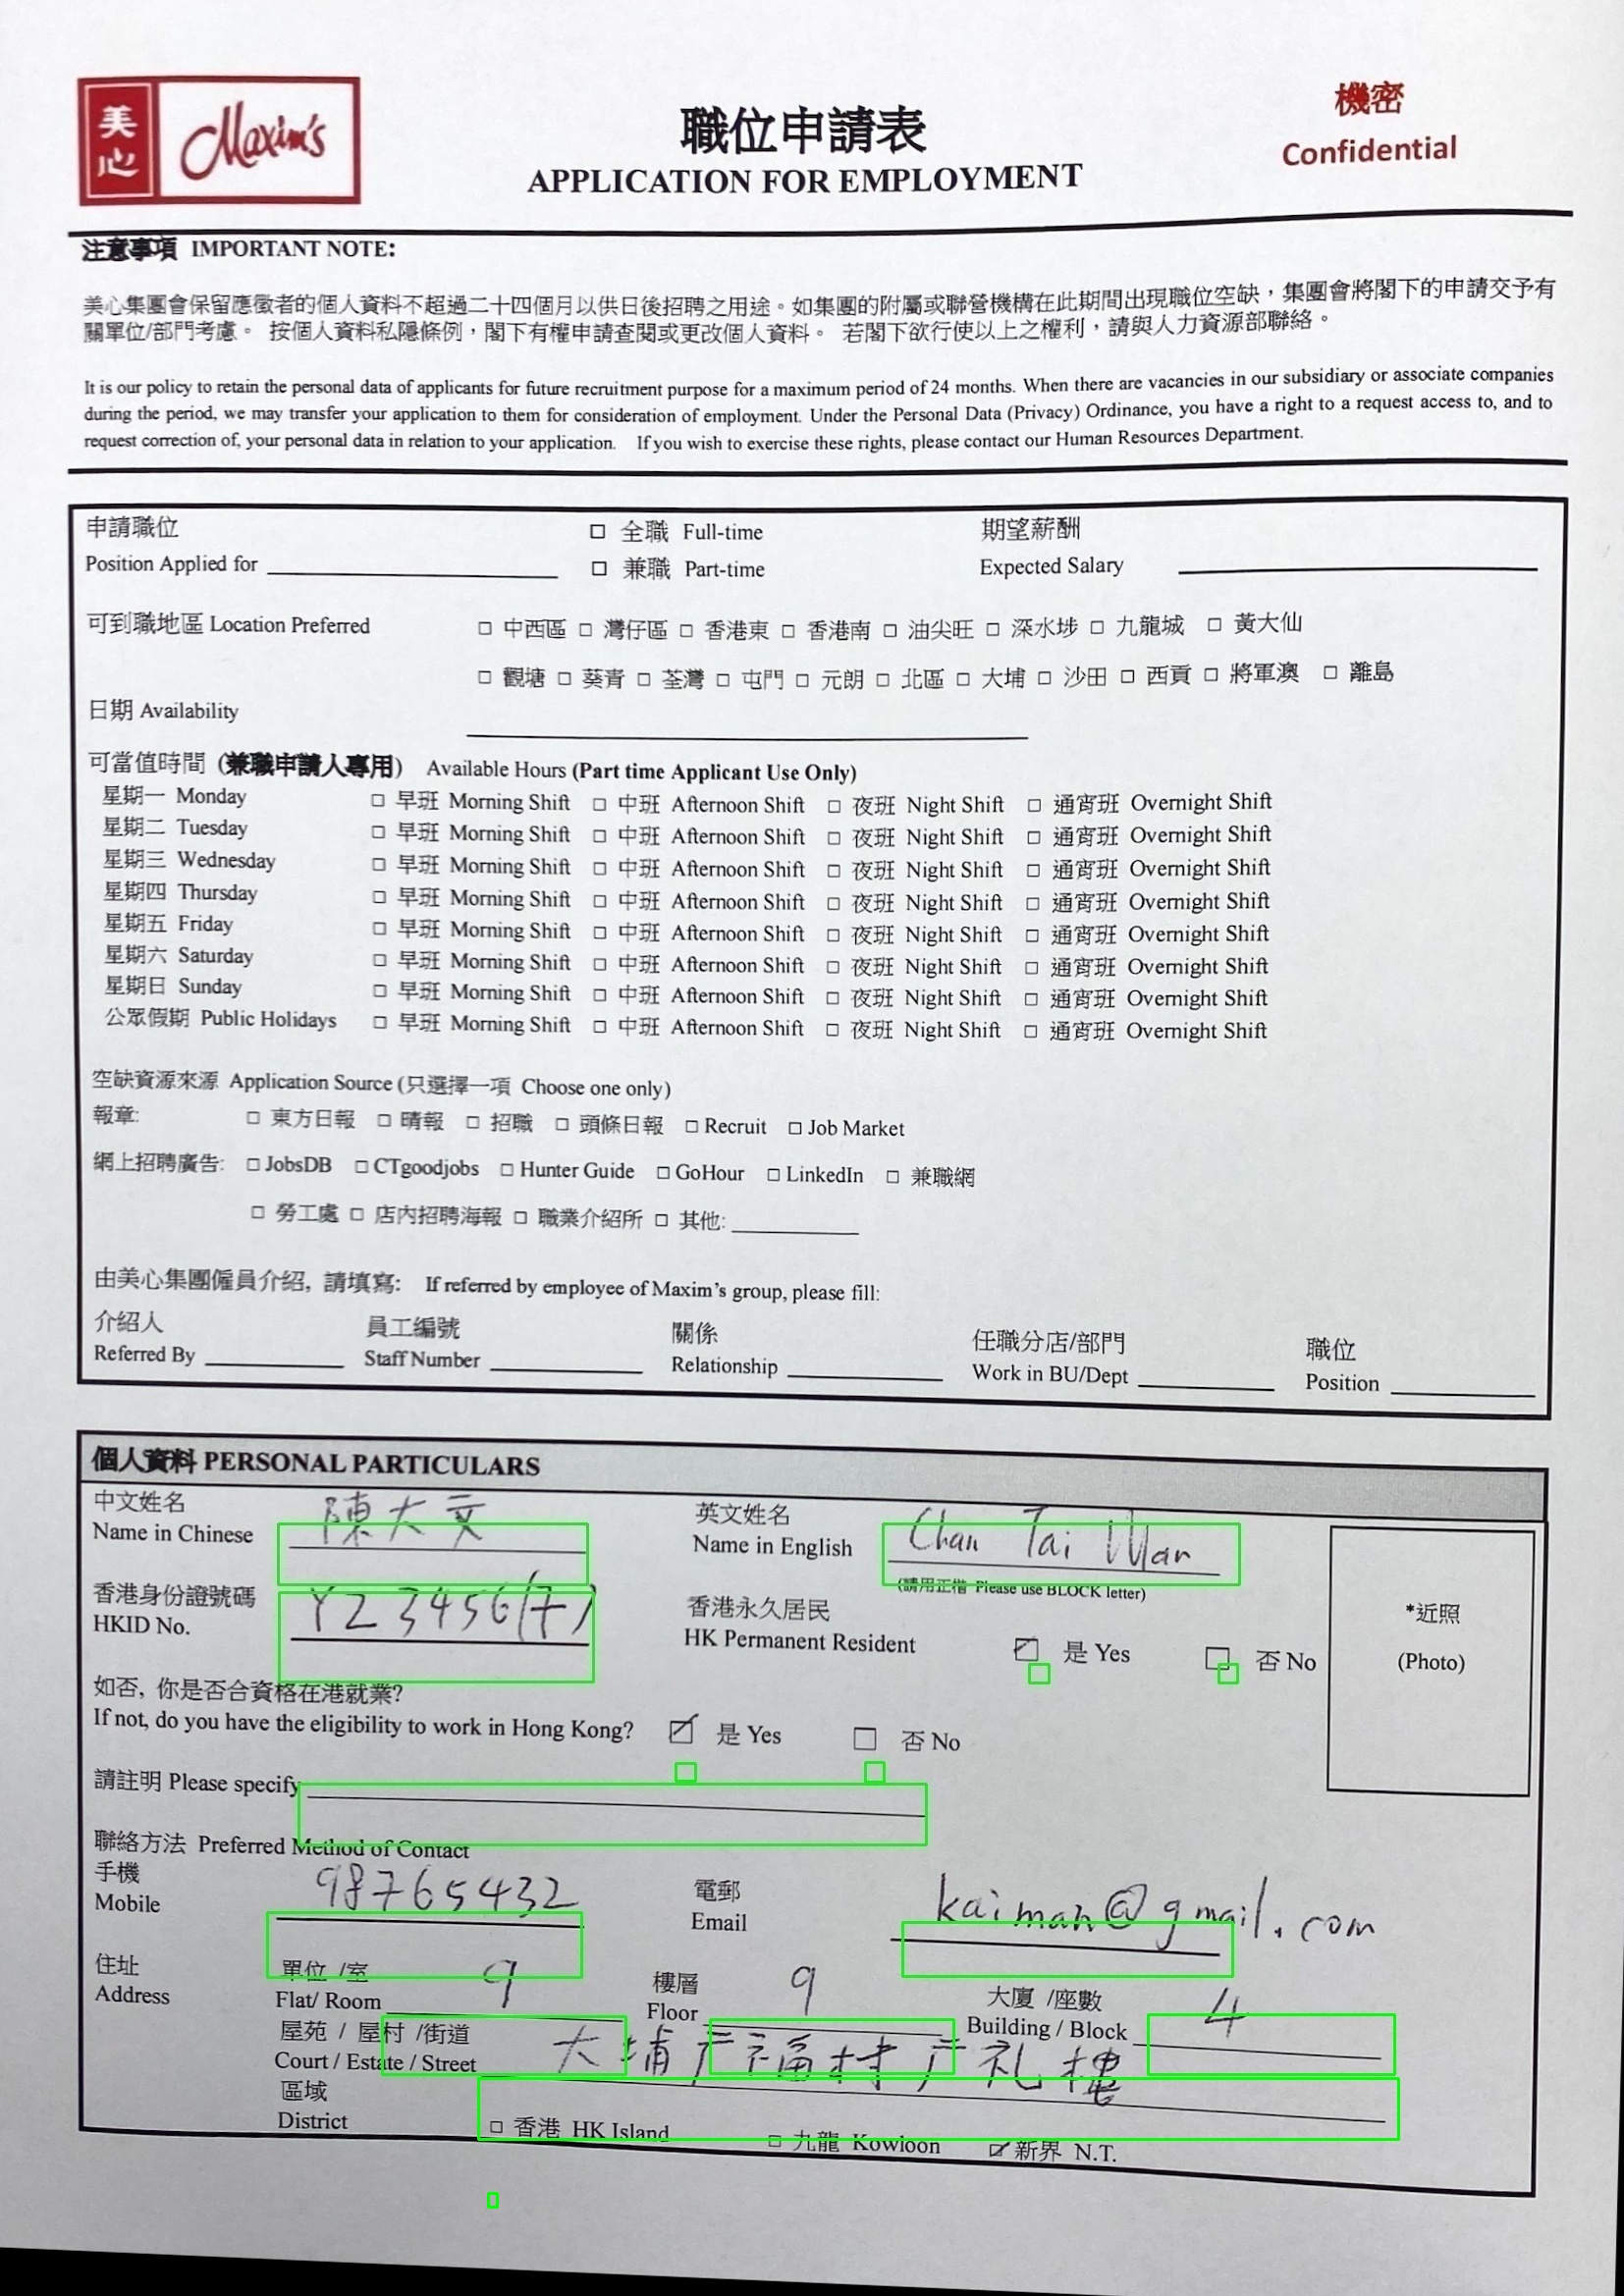 美心 Maxim's
職位申請表
APPLICATION FOR EMPLOYMENT
機密
Confidential
注意事項 IMPORTANT NOTE:
美心集團會保留應徵者的個人資料不超過二十四個月以供日後招聘之用途。如集團的附屬或聯營機構在此期間出現職位空缺，集團會將閣下的申請交予有
關單位/部門考慮。 按個人資料私隱條例，閣下有權申請查閱或更改個人資料。 若閣下欲行使以上之權利，請與人力資源部聯絡。
It is our policy to retain the personal data of applicants for future recruitment purpose for a maximum period of 24 months. When there are vacancies in our subsidiary or associate companies
during the period, we may transfer your application to them for consideration of employment. Under the Personal Data (Privacy) Ordinance, you have a right to a request access to, and to
request correction of, your personal data in relation to your application. If you wish to exercise these rights, please contact our Human Resources Department.
申請職位 □ 全職 Full-time 期望薪酬
Position Applied for □ 兼職 Part-time Expected Salary
可到職地區 Location Preferred □ 中西區 □ 灣仔區 □ 香港東 □ 香港南 □ 油尖旺 □ 深水埗 □ 九龍城 □ 黃大仙
□ 觀塘 □ 葵青 □ 荃灣 □ 屯門 □ 元朗 □ 北區 □ 大埔 □ 沙田 □ 西貢 □ 將軍澳 □ 離島
日期 Availability
可當值時間 (兼職申請人專用) Available Hours (Part time Applicant Use Only)
星期一 Monday □ 早班 Morning Shift □ 中班 Afternoon Shift □ 夜班 Night Shift □ 通宵班 Overnight Shift
星期二 Tuesday □ 早班 Morning Shift □ 中班 Afternoon Shift □ 夜班 Night Shift □ 通宵班 Overnight Shift
星期三 Wednesday □ 早班 Morning Shift □ 中班 Afternoon Shift □ 夜班 Night Shift □ 通宵班 Overnight Shift
星期四 Thursday □ 早班 Morning Shift □ 中班 Afternoon Shift □ 夜班 Night Shift □ 通宵班 Overnight Shift
星期五 Friday □ 早班 Morning Shift □ 中班 Afternoon Shift □ 夜班 Night Shift □ 通宵班 Overnight Shift
星期六 Saturday □ 早班 Morning Shift □ 中班 Afternoon Shift □ 夜班 Night Shift □ 通宵班 Overnight Shift
星期日 Sunday □ 早班 Morning Shift □ 中班 Afternoon Shift □ 夜班 Night Shift □ 通宵班 Overnight Shift
公眾假期 Public Holidays □ 早班 Morning Shift □ 中班 Afternoon Shift □ 夜班 Night Shift □ 通宵班 Overnight Shift
空缺資源來源 Application Source (只選擇一項 Choose one only)
報章: □ 東方日報 □ 晴報 □ 招職 □ 頭條日報 □ Recruit □ Job Market
網上招聘廣告: □ JobsDB □ CTgoodjobs □ Hunter Guide □ GoHour □ LinkedIn □ 兼職網
□ 勞工處 □ 店內招聘海報 □ 職業介紹所 □ 其他:
由美心集團僱員介紹, 請填寫: If referred by employee of Maxim's group, please fill:
介紹人 員工編號 關係 任職分店/部門 職位
Referred By Staff Number Relationship Work in BU/Dept Position
個人資料 PERSONAL PARTICULARS
中文姓名 陳大文 英文姓名 Chan Tai Man
Name in Chinese Name in English
(請用正楷 Please use BLOCK letter)
香港身份證號碼 Y23456(7) 香港永久居民
HKID No. HK Permanent Resident ☑ 是 Yes □ 否 No
*近照
(Photo)
如否, 你是否合資格在港就業?
If not, do you have the eligibility to work in Hong Kong? ☑ 是 Yes □ 否 No
請註明 Please specify
聯絡方法 Preferred Method of Contact
手機 98765432 電郵 kaiman@gmail.com
Mobile Email
住址 單位 /室 9 樓層 9 大廈 /座數 4
Address Flat/ Room Floor Building / Block
屋苑 / 屋村 /街道 大埔广福村广礼樓
Court / Estate / Street
區域
District □ 香港 HK Island □ 九龍 Kowloon ☑ 新界 N.T.